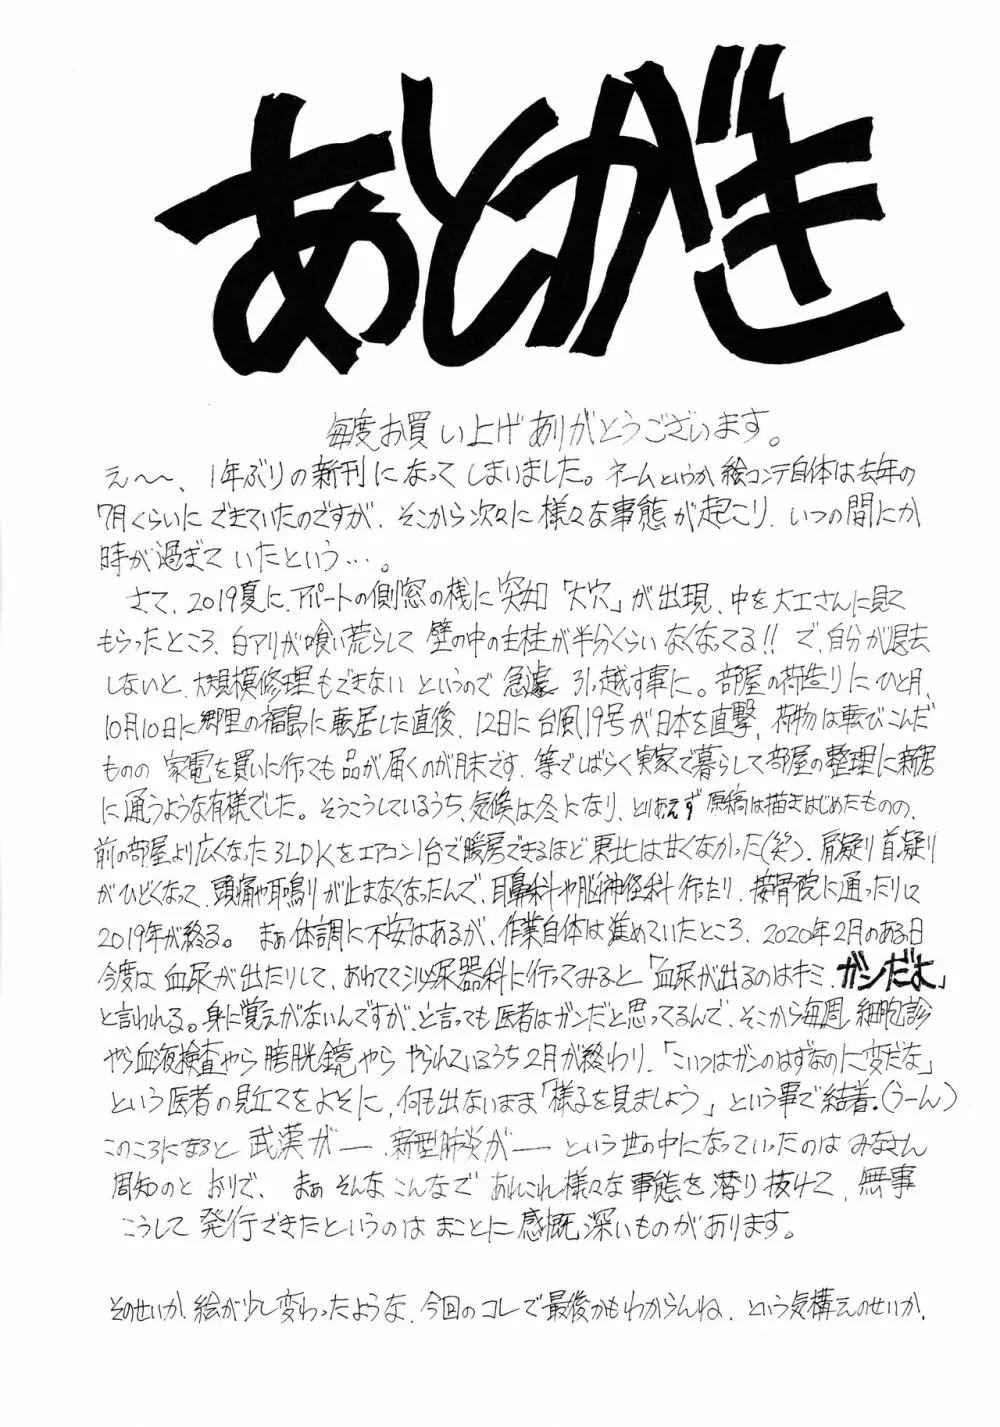 あとがき
毎度お買い上げありがとうございます。
え〜〜、1年ぶりの新刊になってしまいました。ネームというか絵コンテ自体は去年の
7月くらいにできていたのですが、そこから次々に様々な事態が起こり、いつの間にか
時が過ぎていたという…。
さて、2019夏に、アパートの側窓の桟に突如「大穴」が出現、中を大工さんに見て
もらったところ、白アリが喰い荒らして壁の中の主柱が半分くらいなくなってる!!で、自分が退去
しないと、大規模修理もできないというので急遽引っ越す事に。部屋の荷造りにひと月、
10月10日に郷里の福島に転居した直後、12日に台風19号が日本を直撃、荷物は転びこんだ
ものの家電を買いに行っても品が届くのが月末です、等でしばらく実家で暮らして部屋の整理に新居
に通うような有様でした。そうこうしているうち、気候は冬になり、とりあえず原稿は描きはじめたものの、
前の部屋より広くなった3LDKをエアコン1台で暖房できるほど東北は甘くなかった(笑)、肩凝り首凝り
がひどくなって、頭痛や耳鳴りが止まなくなったんで、耳鼻科や脳神経科行ったり、接骨院に通ったりして
2019年が終る。まぁ体調に不安はあるが、作業自体は進めていたところ、2020年2月のある日
今度は血尿が出たりして、あわてて泌尿器科に行ってみると「血尿が出るのはキミ、ガンだよ」
と言われる。身に覚えがないんですが、と言っても医者はガンだと思ってるんで、そこから毎週細胞診
やら血液検査やら膀胱鏡やらやられているうち2月が終わり、「こいつはガンのはずなのに変だな」
という医者の見立てをよそに、何も出ないまま「様子を見ましょう」という事で結着。(うーん)
このころになると武漢が――新型肺炎が――という世の中になっていったのはみなさん
周知のとおりで、まぁそんなこんなであれこれ様々な事態を潜り抜けて、無事
こうして発行できたというのはまことに感慨深いものがあります。
そのせいか、絵が少し変わったような、今回のコレで最後かもわからんね、という気構えのせいか、